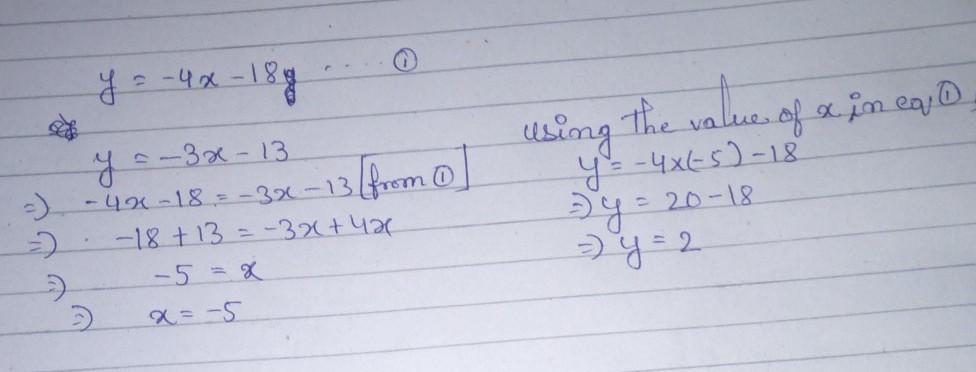 y = -4x - 18 .... ①
y = -3x - 13
⇒) -4x - 18 = -3x - 13 [from ①]
⇒) -18 + 13 = -3x + 4x
⇒) -5 = x
⇒) x = -5
using the value of x in eq ①
y = -4x(-5) - 18
⇒) y = 20 - 18
⇒) y = 2